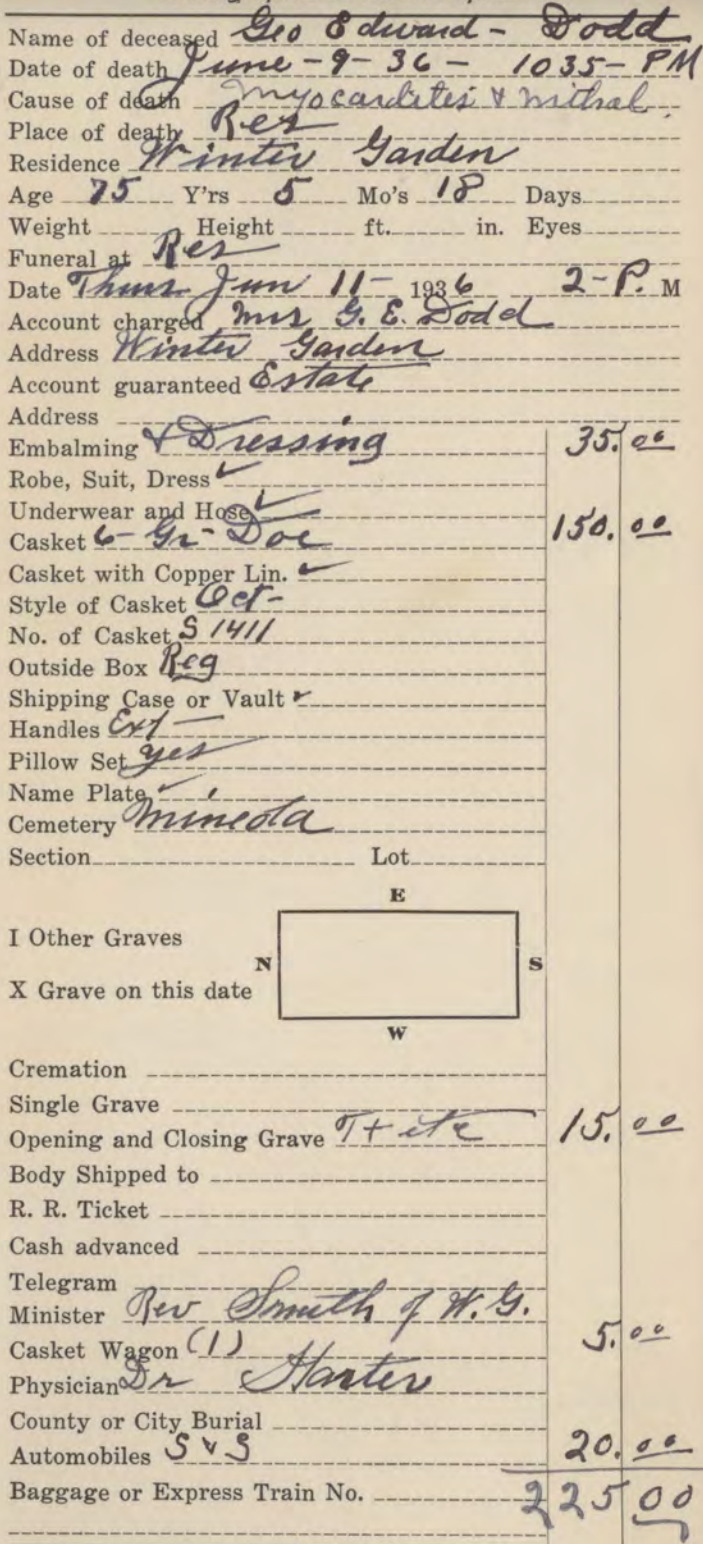 Name of deceased Geo Edward - Dodd
Date of death June - 9 - 36 - 1035 - PM
Cause of death Myocardites & mitral.
Place of death Res
Residence Winter Garden
Age 75 Y'rs 5 Mo's 18 Days
Weight Height ft. in. Eyes
Funeral at Res
Date Thurs Jun 11 - 1936 2 - P. M
Account charged Mrs G. E. Dodd
Address Winter Garden
Account guaranteed Estate
Address
Embalming & Dressing 35.00
Robe, Suit, Dress ✓
Underwear and Hose ✓
Casket 6 - Gr - Doe 150.00
Casket with Copper Lin. ✓
Style of Casket Oct -
No. of Casket S 1411
Outside Box Reg
Shipping Case or Vault ✓
Handles Ext -
Pillow Set yes
Name Plate ✓
Cemetery Mineola
Section Lot
E
I Other Graves
N S
X Grave on this date
W
Cremation
Single Grave
Opening and Closing Grave T + etc 15.00
Body Shipped to
R. R. Ticket
Cash advanced
Telegram
Minister Rev Smith of W. G.
Casket Wagon (1) 5.00
Physician Dr
County or City Burial
Automobiles S & S 20.00
Baggage or Express Train No. 225 00